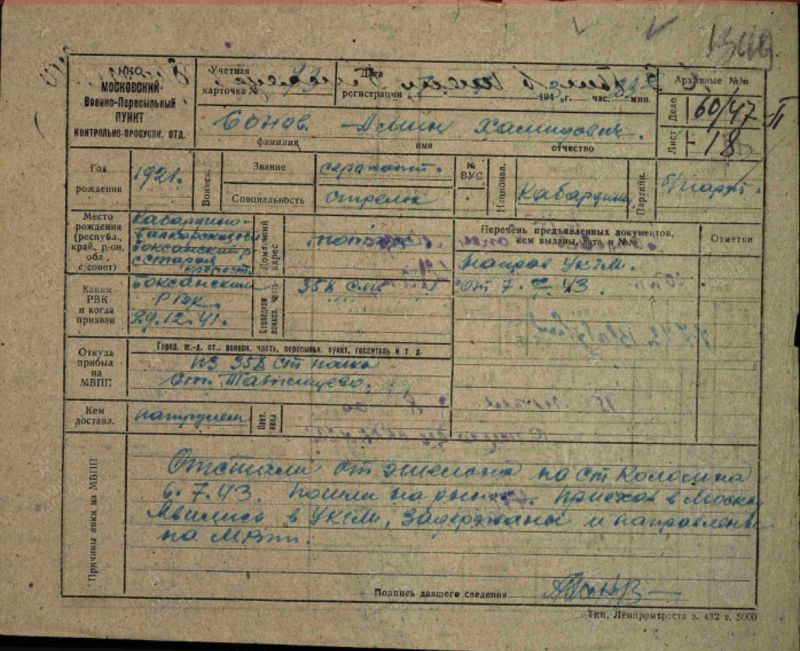 НКО
МОСКОВСКИЙ
Военно-Пересыльный
ПУНКТ
КОНТРОЛЬНО-ПРОПУСКН. ОТД.
Учетная
карточка №
Дата
регистрации 194 г. час. мин
Архивные №№
Дело 60/47 II
Лист 18
Бонов Хамидович.
фамилия имя отчество
Год
рождения
1921г.
Воинск.
Звание
сержант.
Специальность
стрелок
№
ВУС
Национал.
Кабардинец
Партийн.
б/парт.
Место
рождения
(республ.,
край, р-он,
обл.,
с/совет)
Кабардино-
Балкарская
Боксанский р
с Старая
крепост.
Домашний
адрес
Перечень предъявленных документов,
кем выданы, дата и №№
Отметки
Направ УКГМ.
От 7. 7. 43.
Каким
РВК
и когда
призван
Боксанский
РВК.
29.12.41.
358 сп.
Откуда
прибыл
на
МВПП
Город, ж.-д. ст., воинск. часть, пересыльн. пункт, госпиталь и т. д.
из 358 ст полка
ст. Татищево.
Кем
доставл.
патрулем
Отстали от эшелона на ст
6.7.43. пошли на рынок. Приехав в Москву
Явились в УКГМ, задержаны и направлены
на МВПП.
Причины явки на МВПП
Подпись давшего сведения
Тип. Ленпромтреста з. 432 т. 5000